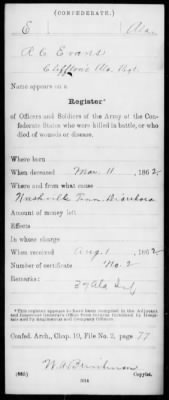 (CONFEDERATE.)
E Ala.
A C Evans
Clifton's Ala. Regt.
Name appears on a
Register*
of Officers and Soldiers of the Army of the Con-
federate States who were killed in battle, or who
died of wounds or disease.
Where born
When deceased Mar. 11, 1862
Where and from what cause
Nashville Tenn Diarrhoea
Amount of money left
Effects
In whose charge
When received Aug. 1, 1862
Number of certificate No. 2
Remarks:
39 Ala Inf
*This register appears to have been compiled in the Adjutant
and Inspector General's Office from returns furnished by Hospi-
tals and by Regimental and Company Officers.
Confed. Arch., Chap. 10, File No. 2, page 77
Copyist.